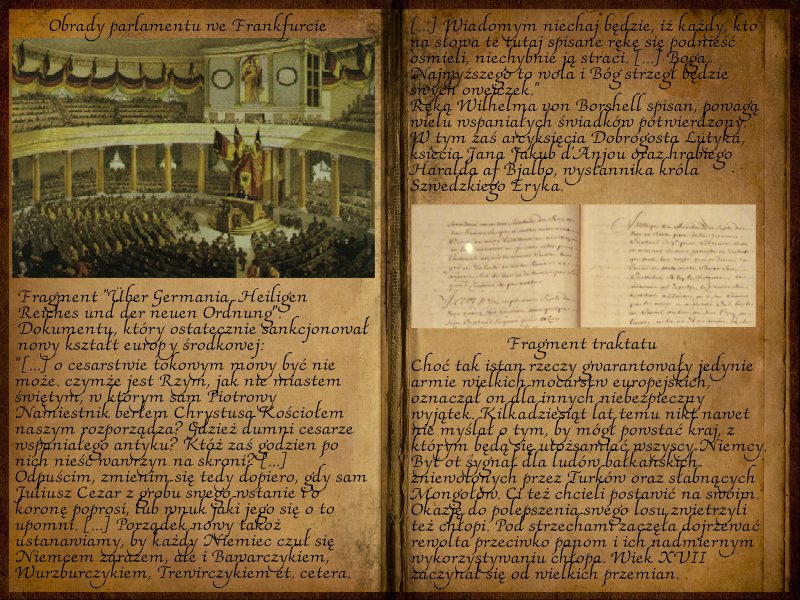 Obrady parlamentu we Frankfurcie
Fragment "Über Germania, Heiligen
Reiches und der neuen Ordnung".
Dokumentu, który ostatecznie sankcjonował
nowy kształt europy środkowej:
"[...] o cesarstwie tokowym mowy być nie
może. czymże jest Rzym, jak nie miastem
świętym, w którym sam Piotrowy
Namiestnik berłem Chrystusa Kościołem
naszym rozporządza? Gdzież dumni cesarze
wspaniałego antyku? Któż zaś godzien po
nich nieść wawrzyn na skroni? [...]
Odpuścim, zmienim się tedy dopiero, gdy sam
Juliusz Cezar z grobu swego wstanie i o
koronę poprosi, lub wnuk jaki jego się o to
upomni. [...] Porządek nowy takoż
ustanawiamy, by każdy Niemiec czuł się
Niemcem zarazem, ale i Bawarczykiem,
Wurzburczykiem, Trewirczykiem et. cetera.
[...] Wiadomym niechaj będzie, iż każdy, kto
na słowa te tutaj spisane rękę się podnieść
ośmieli, niechybnie ją straci. [...] Boga
Najwyższego to wola i Bóg strzegł będzie
swych owieczek."
Ręka Wilhelma von Borshell spisan, powagą
wielu wspaniałych świadków potwierdzony.
W tym zaś arcyksięcia Dobrogosta Lutyka,
księcia Jana Jakub d'Anjou oraz hrabiego
Haralda af Bjalbo, wysłannika króla
Szwedzkiego Eryka.
Fragment traktatu
Choć tak istan rzeczy gwarantowały jedynie
armie wielkich mocarstw europejskich,
oznaczał on dla innych niebezpieczny
wyjątek. Kilkadziesiąt lat temu nikt nawet
nie myślał o tym, by mógł powstać kraj, z
którym będą się utożsamiać wszyscy Niemcy.
Był ot sygnał dla ludów bałkańskich
zniewolonych przez Turków oraz słabnących
Mongołów. Ci też chcieli postawić na swoim.
Okazję do polepszenia swego losu zwietrzyli
też chłopi. Pod strzechami zaczęła dojrzewać
rewolta przeciwko panom i ich nadmiernym
wykorzystywaniu chłopa. Wiek XVII
zaczynał się od wielkich przemian.